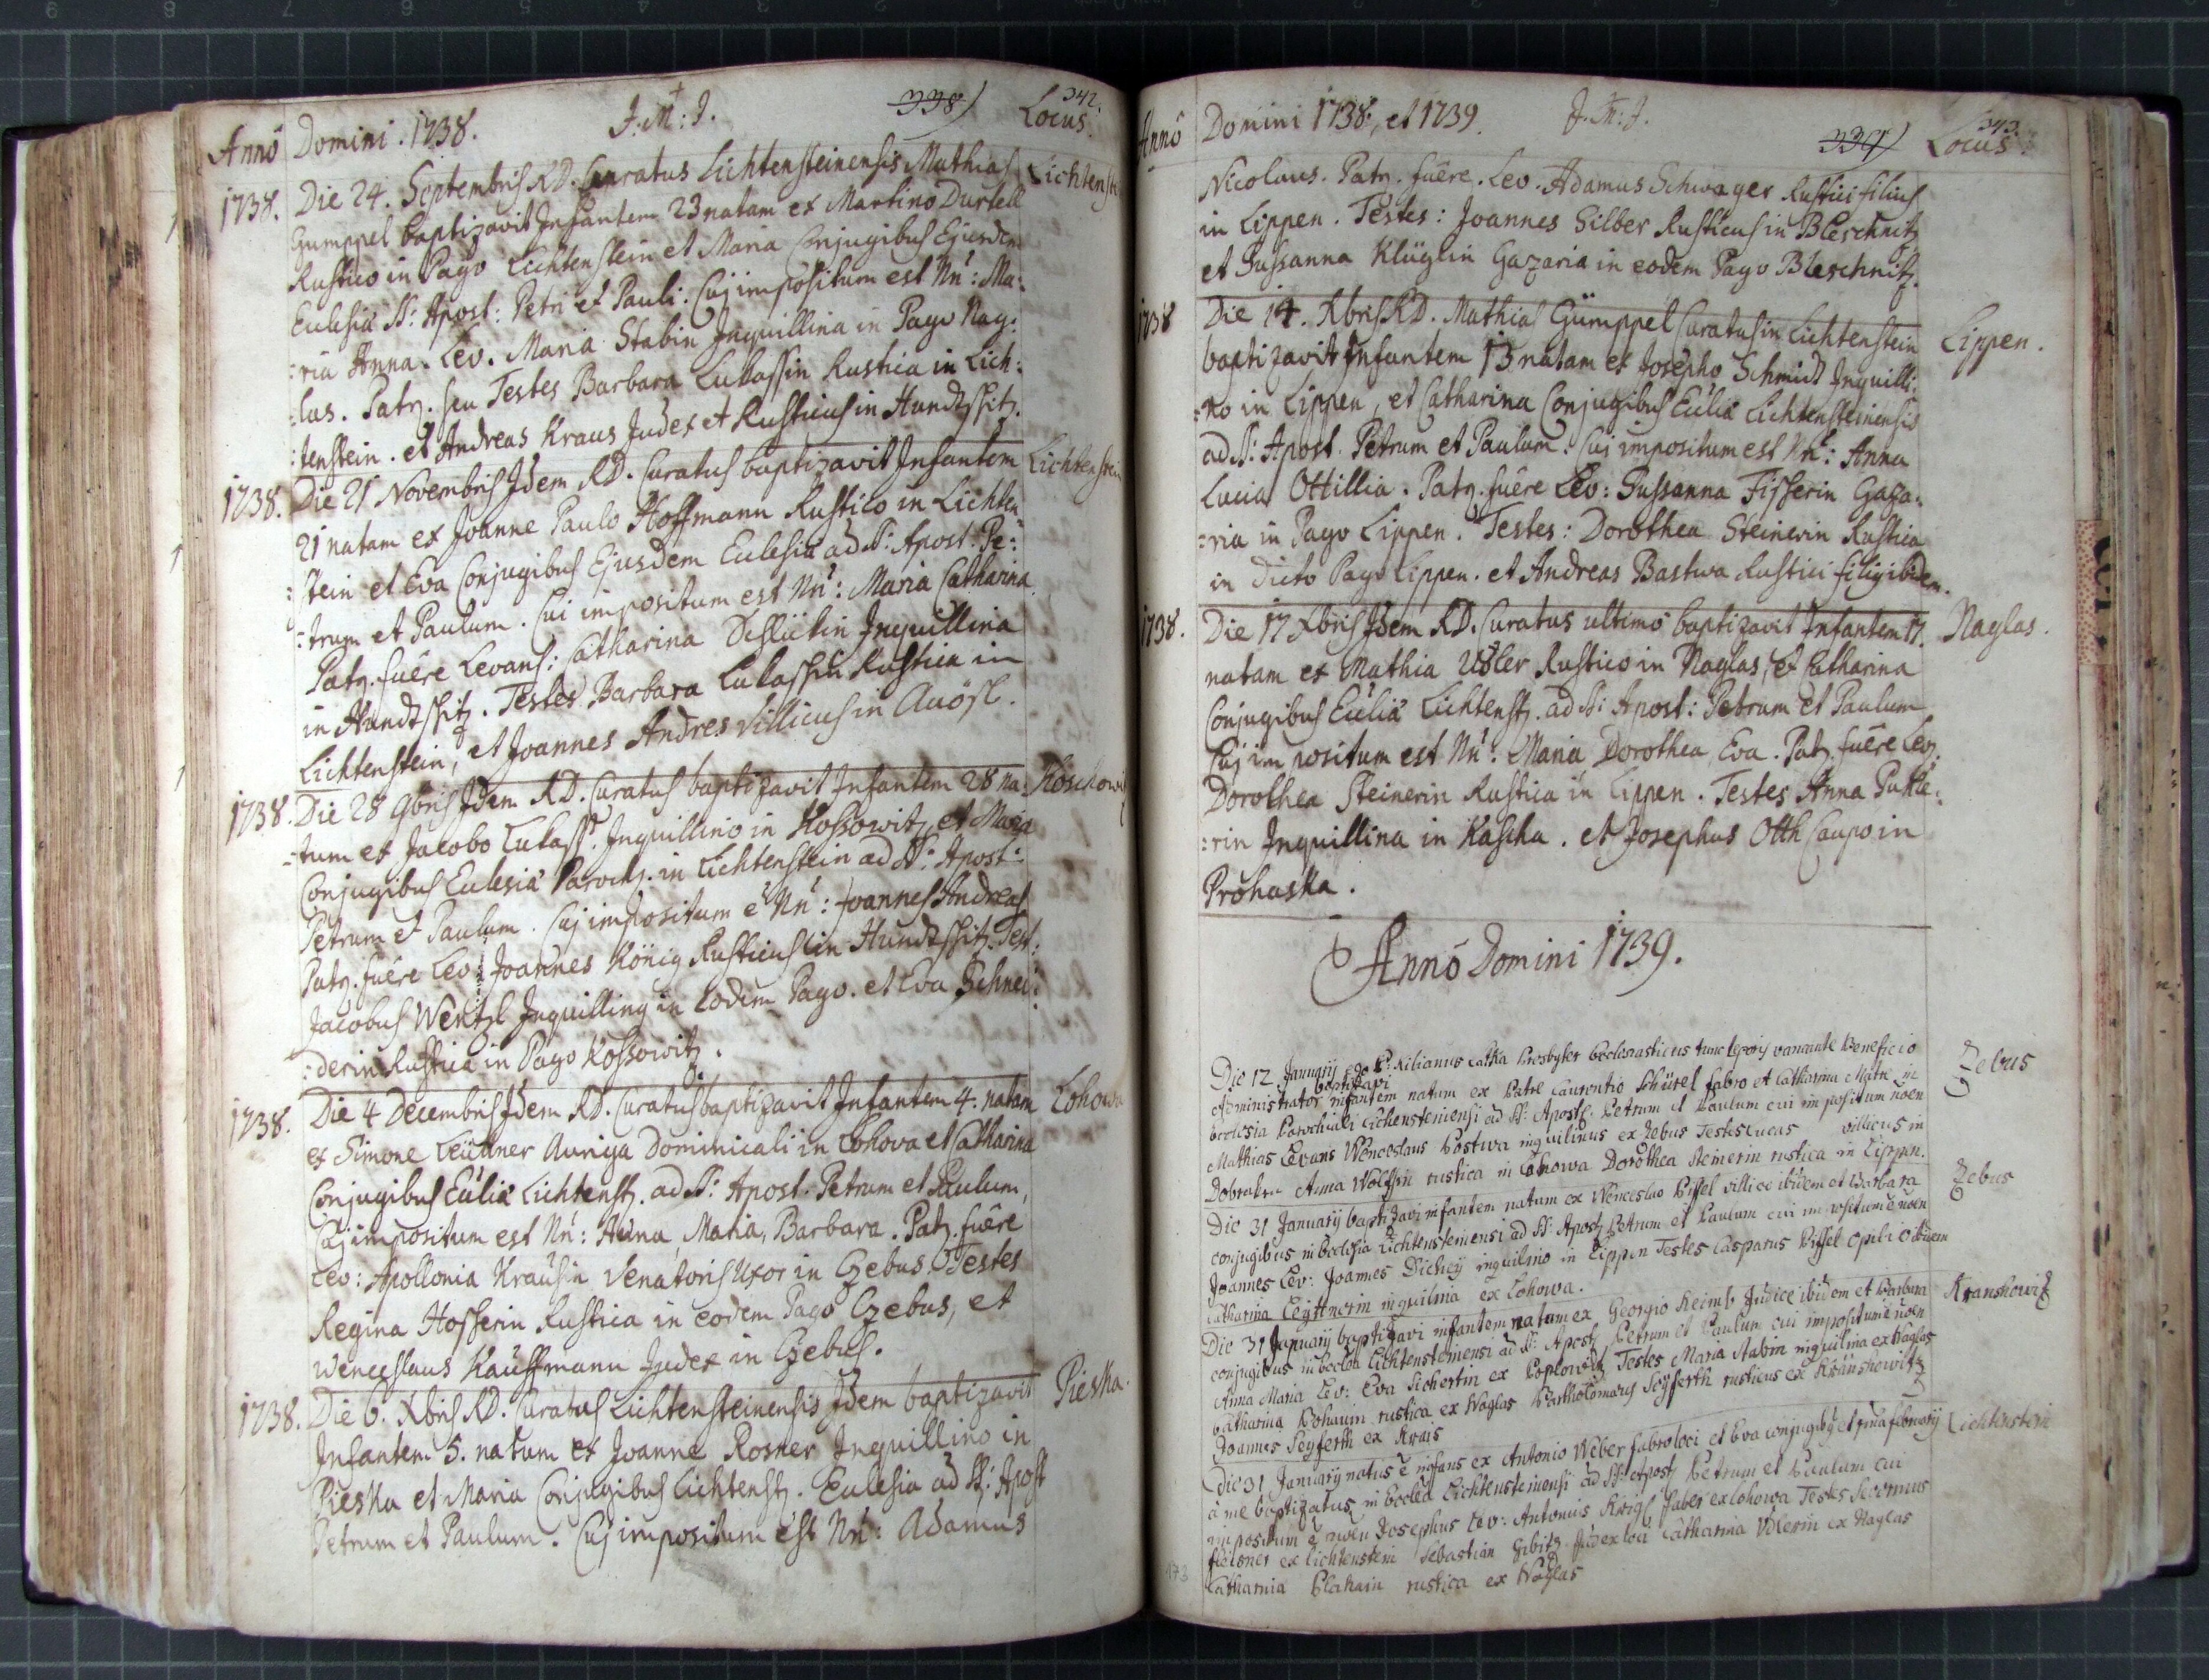 Annô Domini. 1738. J: M: J. 338) 342. Locus.
1738. Die 24. Septembris RD. Curatus Lichtensteinensis Mathias Lichtenst
Gumppel baptizavit Infantem 23 natam ex Martino Durtell
Rustico in Pago Lichtenstein et Maria Conjugibus Ejusdem
Eccلesia SS: Apost: Petri et Pauli. Cuj impositum est Nn: Ma:
:ria Anna. Lev. Maria Stabin Inquillina in Pago Nag:
:las. Patr. seu Testes Barbara Lukassin Rustica in Lich:
:tenstein. et Andreas Kraus Judex et Rusticus in Hundtshitz.
1738. Die 21 Novembris Idem RD. Curatus baptizavit Infantem Lichtenstein
21 natam ex Joanne Paulo Hoffmann Rustico in Lichten:
:stein et Eva Conjugibus Ejusdem Eclesiæ ad SS: Apost. Pe:
:trum et Paulum. Cui impositum est Nn: Maria Catharina
Patr. fuêre Levans: Catharina Inquillina
in Hundtshitz. Testes Barbara Lukassin Rustica in
Lichtenstein, et Joannes Andres Villicus in
1738. Die 28 9bris Idem RD. Curatus baptizavit Infantem 28 na: Koschowi
:tum ex Jacobo Lukass: Inquillino in Kossowitz et Maria
Conjugibus Eclesiæ Paroch. in Lichtenstein ad SS: Apost:
Petrum et Paulum. Cuj impositum ê Nn: Joannes Andreas
Patr. fuêre Lev: Joannes König Rusticus in Hundtshitz. Test:
Jacobus Wentzl Inquilling in eodem Pago. et Eva Schnei:
:derin Rustica in Pago Kossowitz.
1738. Die 4 Decembris Idem RD. Curatus baptizavit Infantem 4. natam Lohowa
ex Simone Leüdner Auriga Dominicali in Lohova et Catharina
Conjugibus Eccliæ Lichtenst. ad SS: Apost. Petrum et Paulum,
Cuj impositum est Nn: Anna, Maria, Barbara. Patr. fuêre
Lev: Apollonia Krausin Venatoris Uxor in Czebus. Testes
Regina Hosserin Rustica in eodem Pago Czebus, et
Wenceslaus Kauffmann Judex in Czebus.
1738. Die 6. Xbris RD. Curatus Lichtensteinensis Idem baptizavit Pieska.
Infantem 5. natum ex Joanne Rosner Inquillino in
Pieska et Maria Conjugibus Lichtenst. Eclesia ad SS: Apost
Petrum et Paulum. Cuj impositum est Nn: Adamus
Annô Domini 1738, et 1739. J. M: J. 339) 343. Locus.
Nicolaus. Patr. fuêre. Lev. Adamus Schwager Rustici filius
in Lippen. Testes: Joannes Silber Rusticus in Bleschnitz
et Sussanna Klüglin Gazaria in eodem Pago Bleschnitz.
1738 Die 14. Xbris RD. Mathias Gümppel Curatus in Lichtenstein Lippen.
baptizavit Infantem 13 natam ex Josepho Schmidt Inquilli:
:no in Lippen, et Catharina Conjugibus Eccliæ Lichtensteinensis
ad SS: Apost. Petrum et Paulum. Cuj impositum est Nn: Anna
Lucia Ottillia. Patr. fuêre Lev: Sussanna Fisserin Gaza:
:ria in Pago Lippen. Testes: Dorothea Steinerin Rustica
in dicto Pago Lippen. et Andreas Bastwa Rustici filij ibidem.
1738. Die 17 Xbris Idem RD. Curatus ultimô baptizavit Infantem 17. Naglas.
natam ex Mathia Ubler Rustico in Naglas, et Catharina
Conjugibus Eccliæ Lichtenst. ad SS: Apost: Petrum et Paulum
Cuj impositum est Nn: Maria Dorothea Eva. Patr. fuêre Lev.
Dorothea Steinerin Rustica in Lippen. Testes Anna
:rin Inquillina in Kascha. et Josephus Otth Caupo in
Prohaska.
Annô Domini 1739.
Die 12 Januarij Ego P. Kilianus Presbyter Ecclesiasticus tunc temporis vacante Beneficio Zebus
baptizavi
Administrator infantem natum ex Patre Laurentio Schürel fabro et Catharina Matre in
Ecclesia Parochiali Lichtensteinensi ad SS: Apost. Petrum et Paulum cui impositum noen
Mathias Levans Wenceslaus Postwa inquilinus ex Zebus Testes Lucas villicus in
Dobraken Anna Wolfsin rustica in Lohowa Dorothea Steinerin rustica in Lippen.
Die 31 Januarij baptizavi infantem natum ex Wenceslao Pissel villico ibidem et Barbara Zebus
conjugibus in Ecclesia Lichtensteinensi ad SS: Apost. Petrum et Paulum cui impositum ê noen
Joannes Lev: Joannes Dichtij inquilino in Lippen Testes Casparus Pissel opilio ibidem
Catharina Leyttnerin inquilina ex Lohowa.
Die 31 Januarij baptizavi infantem natam ex Georgio Reims Judice ibidem et Barbara Kranshowitz
conjugibus in Ecclea Lichtensteinensi ad SS: Apost. Petrum et Paulum cui impositum ê noen
Anna Maria Lev: Eva Sichertin ex Poplowitz Testes Maria Stabin inquilina ex Naglas
Catharina Pohanin rustica ex Naglas Bartholomæus Seyferth rusticus ex Kränshowitz
Joannes Seyferth ex Krais
Die 31 Januarij natus ê infans ex Antonio Weber fabro loci et Eva conjugibus et prima februarij Lichtenstein
à me baptizatus in Ecclea Lichtensteinensi ad SS: Apost. Petrum et Paulum cui
impositum ê noen Josephus Lev: Antonius Krigl faber ex Lohowa Testes
ex Lichtenstein Sebastian Gibitz Judex loci Catharina Vblerin ex Naglas
Catharina rustica ex Naglas
173